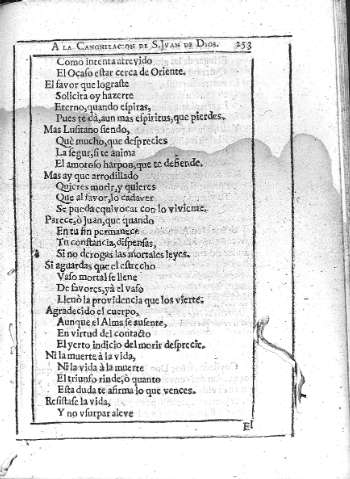 A LA CANONIZACION DE S. JVAN DE DIOS. 253
Como intenta atrevido
El Ocaso estar cerca de Oriente.
El favor que lograste
Solicita oy hazerte
Eterno, quando espiras,
Pues te dà, aun mas espiritus, que pierdes.
Mas Lusitano siendo,
Què mucho, que desprecies
La segur, si te anima
El amoroso harpon, que te defiende.
Mas ay que arrodillado
Quieres morir, y quieres
Que al favor, lo cadaver
Se pueda equivocar con lo viviente.
Parece, ò Juan, que quando
En tu fin permanece
Tu constancia, dispensas,
Si no derogas las mortales leyes.
Si aguardas que el estrecho
Vaso mortal se llene
De favores, yà el vaso
Llenò la providencia que los vierte.
Agradecido el cuerpo,
Aunque el Alma se ausente,
En virtud del contacto
El yerto indicio del morir desprecie.
Ni la muerte à la vida,
Ni la vida à la muerte
El triunfo rinde, ò quanto
Esta duda te afirma lo que vences.
Resistase la vida,
Y no vsurpar aleve
El